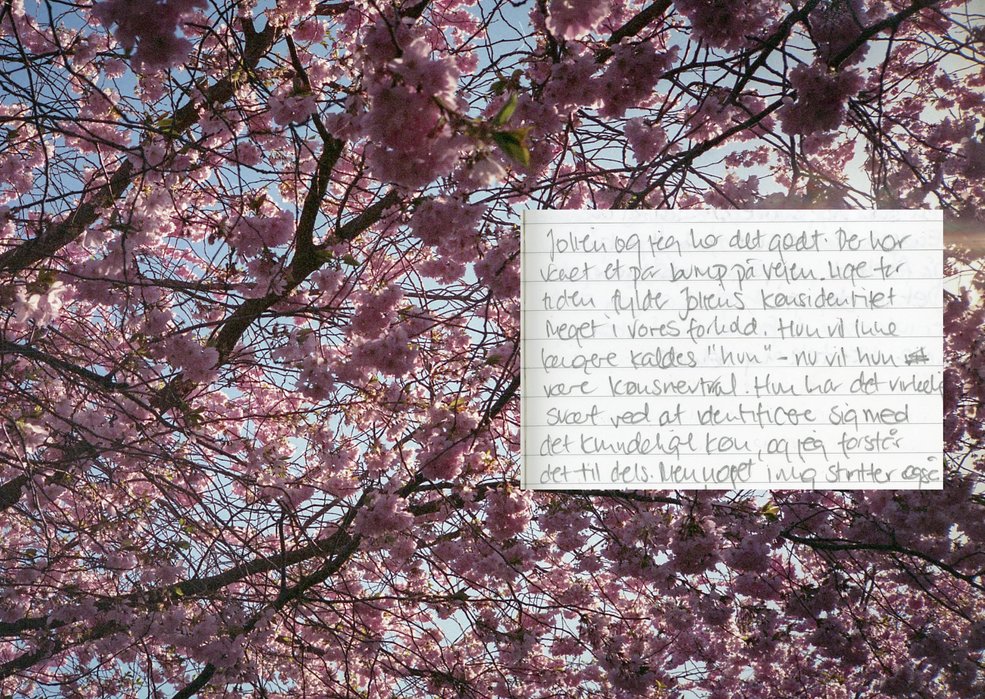 Jolien og jeg har det godt. Der har
været et par bump på vejen. Lige for
tiden fylder Joliens kønsidentitet
meget i vores forhold. Hun vil ikke
længere kaldes "hun" - nu vil hun
være kønsneutral. Hun har det virkeli
svært ved at identificere sig med
det kvindelige køn, og jeg forstår
det til dels. Men noget i mig stritter også